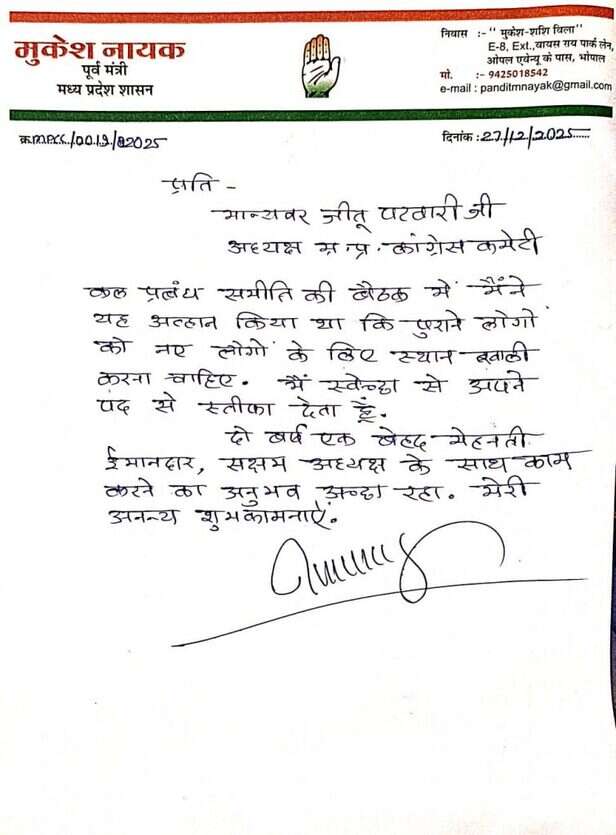 मुकेश नायक
पूर्व मंत्री
मध्य प्रदेश शासन
निवास :-" मुकेश-शशि विला"
E-8, Ext.,वायस राय पार्क लेन,
ओपल एवेन्यू के पास, भोपाल
मो. :- 9425018542
e-mail : panditmnayak@gmail.com
क्र.MPCC/0019/2025
दिनांक :27/12/2025
प्रति -
मान्यवर जीतू पटवारी जी
अध्यक्ष म.प्र. कांग्रेस कमेटी
कल प्रबंध समीति की बैठक में मैंने
यह अव्हान किया था कि पुराने लोगों
को नए लोगों के लिए स्थान खाली
करना चाहिए. मैं स्वेच्छा से अपने
पद से स्तीफा देता हूँ.
दो बर्ष एक बेहद मेहनती
ईमानदार, सक्षम अध्यक्ष के साथ काम
करने का अनुभव अच्छा रहा. मेरी
अनन्य शुभकामनाऐं.